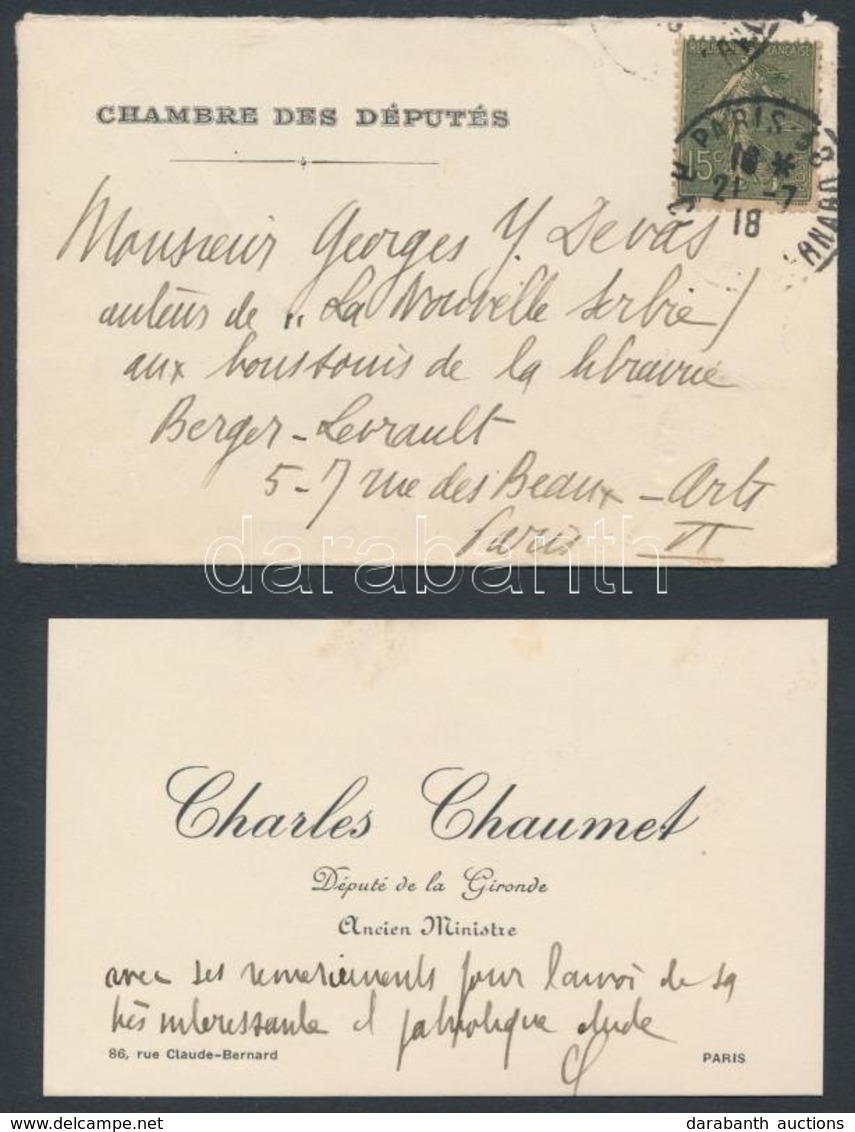 CHAMBRE DES DÉPUTÉS
REPUBLIQUE FRANÇAISE
15c
PARIS
18 *
21 - 7
18
Monsieur Georges Y. Devas
auteur de „La Nouvelle Serbie/
aux bons soins de la librairie
Berger-Levrault
5-7 rue des Beaux-Arts
Paris VI
darabanth
Charles Chaumet
Député de la Gironde
Ancien Ministre
avec ses remerciements pour l'envoi de sa
très intéressante et patriotique étude
86, rue Claude-Bernard
PARIS
www.delcampe.net
darabanth auctions